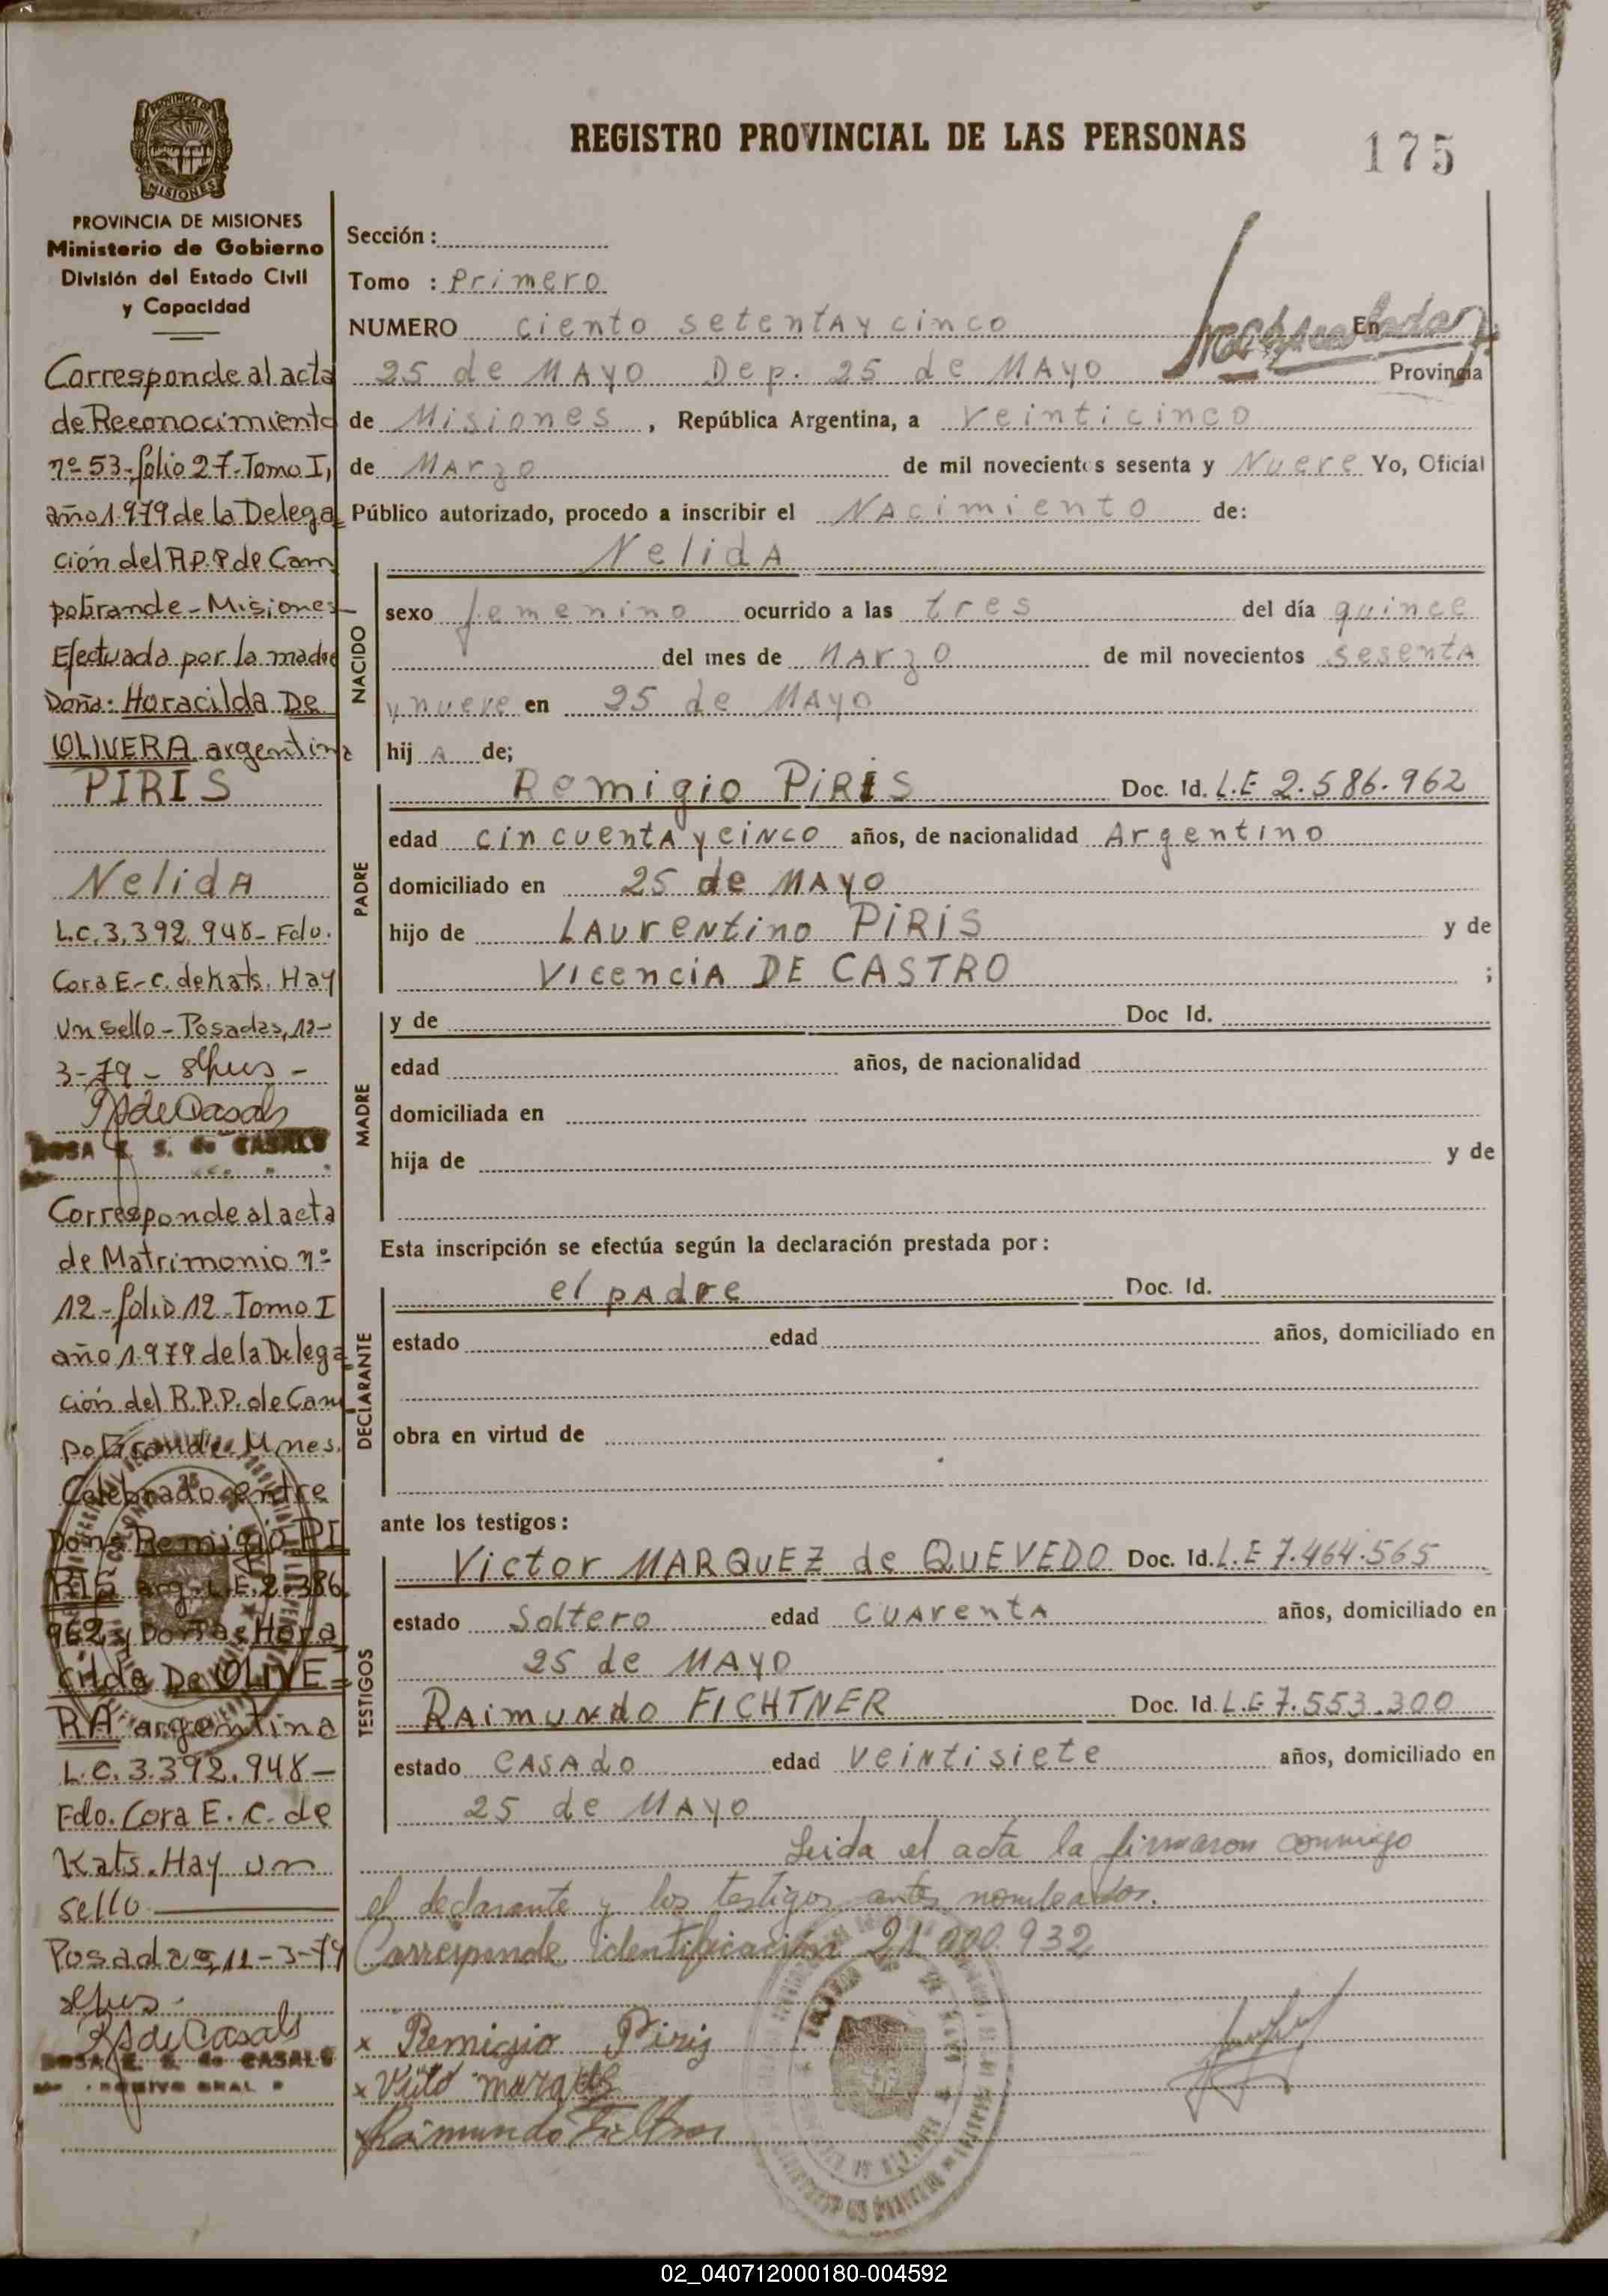 REGISTRO PROVINCIAL DE LAS PERSONAS
175
PROVINCIA DE
MISIONES
PROVINCIA DE MISIONES
Ministerio de Gobierno
División del Estado Civil
y Capacidad
Corresponde al acta
de Reconocimiento
nº 53-folio 27-Tomo I,
año 1.979 de la Delega
ción del R.P.P de Cam
poGrande-Misiones-
Efectuada por la madre
Doña: Horacilda De
OLIVERA argentina
PIRIS
Nelida
L.C.3.392.948- Fdo.
Cora E-C. de Kats. Hay
un sello-Posadas, 12-
3-79-
RSdeCasals
ROSA E. S. de CASALS
Corresponde al acta
de Matrimonio nº
12-folio 12-Tomo I
año 1.979 de la Delega
ción del R.P.P. de Cam
poGrande. Mnes.
Celebrado entre
Dons Remigio PI
RIS arg. L.E. 2.386.
962 y Doñas Hora
cilda De OLIVE=
RA argentina
L.C. 3.392.948-
Fdo. Cora E. C. de
Kats. Hay un
sello
Posadas, 12-3-79
RSdeCasals
ROSA E. S. de CASALS
Sección:
Tomo : Primero
NUMERO ciento setenta y cinco En
25 de Mayo Dep. 25 de Mayo Provincia
de Misiones, República Argentina, a Veinticinco
de Marzo de mil novecientos sesenta y Nueve Yo, Oficial
Público autorizado, procedo a inscribir el Nacimiento de:
NACIDO
Nelida
sexo femenino ocurrido a las tres del día quince
del mes de Marzo de mil novecientos sesenta
y nueve en 25 de Mayo
hij a de;
PADRE
Remigio PIRIS Doc. Id. L.E 2.586.962
edad cincuenta y cinco años, de nacionalidad Argentino
domiciliado en 25 de Mayo
hijo de Laurentino PIRIS y de
Vicencia DE CASTRO ;
MADRE
y de Doc Id.
edad años, de nacionalidad
domiciliada en
hija de y de
Esta inscripción se efectúa según la declaración prestada por:
DECLARANTE
el padre Doc. Id.
estado edad años, domiciliado en
obra en virtud de
ante los testigos:
TESTIGOS
Victor MARQUEZ de QUEVEDO Doc. Id. L.E 7.464.565
estado Soltero edad cuarenta años, domiciliado en
25 de Mayo
Raimundo FICHTNER Doc. Id. L.E 7.553.300
estado Casado edad veintisiete años, domiciliado en
25 de Mayo
Leida el acta la firmaron conmigo
el declarante y los testigos antes nombrados.
Corresponde identificación 21.000.932
x Remigio Piris
x
Raimundo
02_040712000180-004592